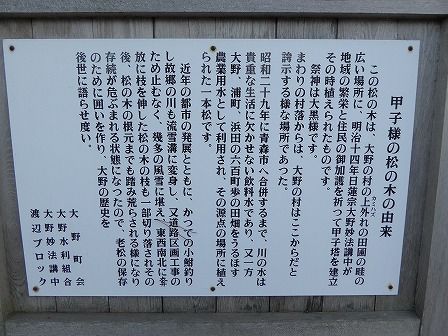 甲子様の松の木の由来
この松の木は、大野の村の上外れの田圃の畦の
広い場所に、明治十四年日蓮宗大野妙法講中が
地域の繁栄と住民の御加護を祈つて甲子塔を建立
その時植えられたものです。
祭神は大黒様です。
まわりの村落からは、大野の村はここからだと
誇示する様な場所であつた。
昭和二十九年に青森市へ合併するまで、川の水は
貴重な生活に欠かせない飲料水であり、又一方
大野、浦町、浜田の六百町歩の田畑をうるほす
農業用水として利用され、その源点の場所に植え
られた一本松です。
近年の都市の発展とともに、かつての小鮒釣り
し故郷の川も流雪溝に変身し、又道路区画工事の
ため止むなく、幾多の風雪に堪え、東西南北に奔
放に枝を伸した松の木の枝も一部切り落されその
後、松の木の根元までも踏み荒らされる様になり
存続が危ぶまれる状態になつたので、老松の保存
のために囲いを作り、大野の歴史を
後世に語らせ度い。
大野町会
大野水利組合
大野妙法講中
渡辺ブロック